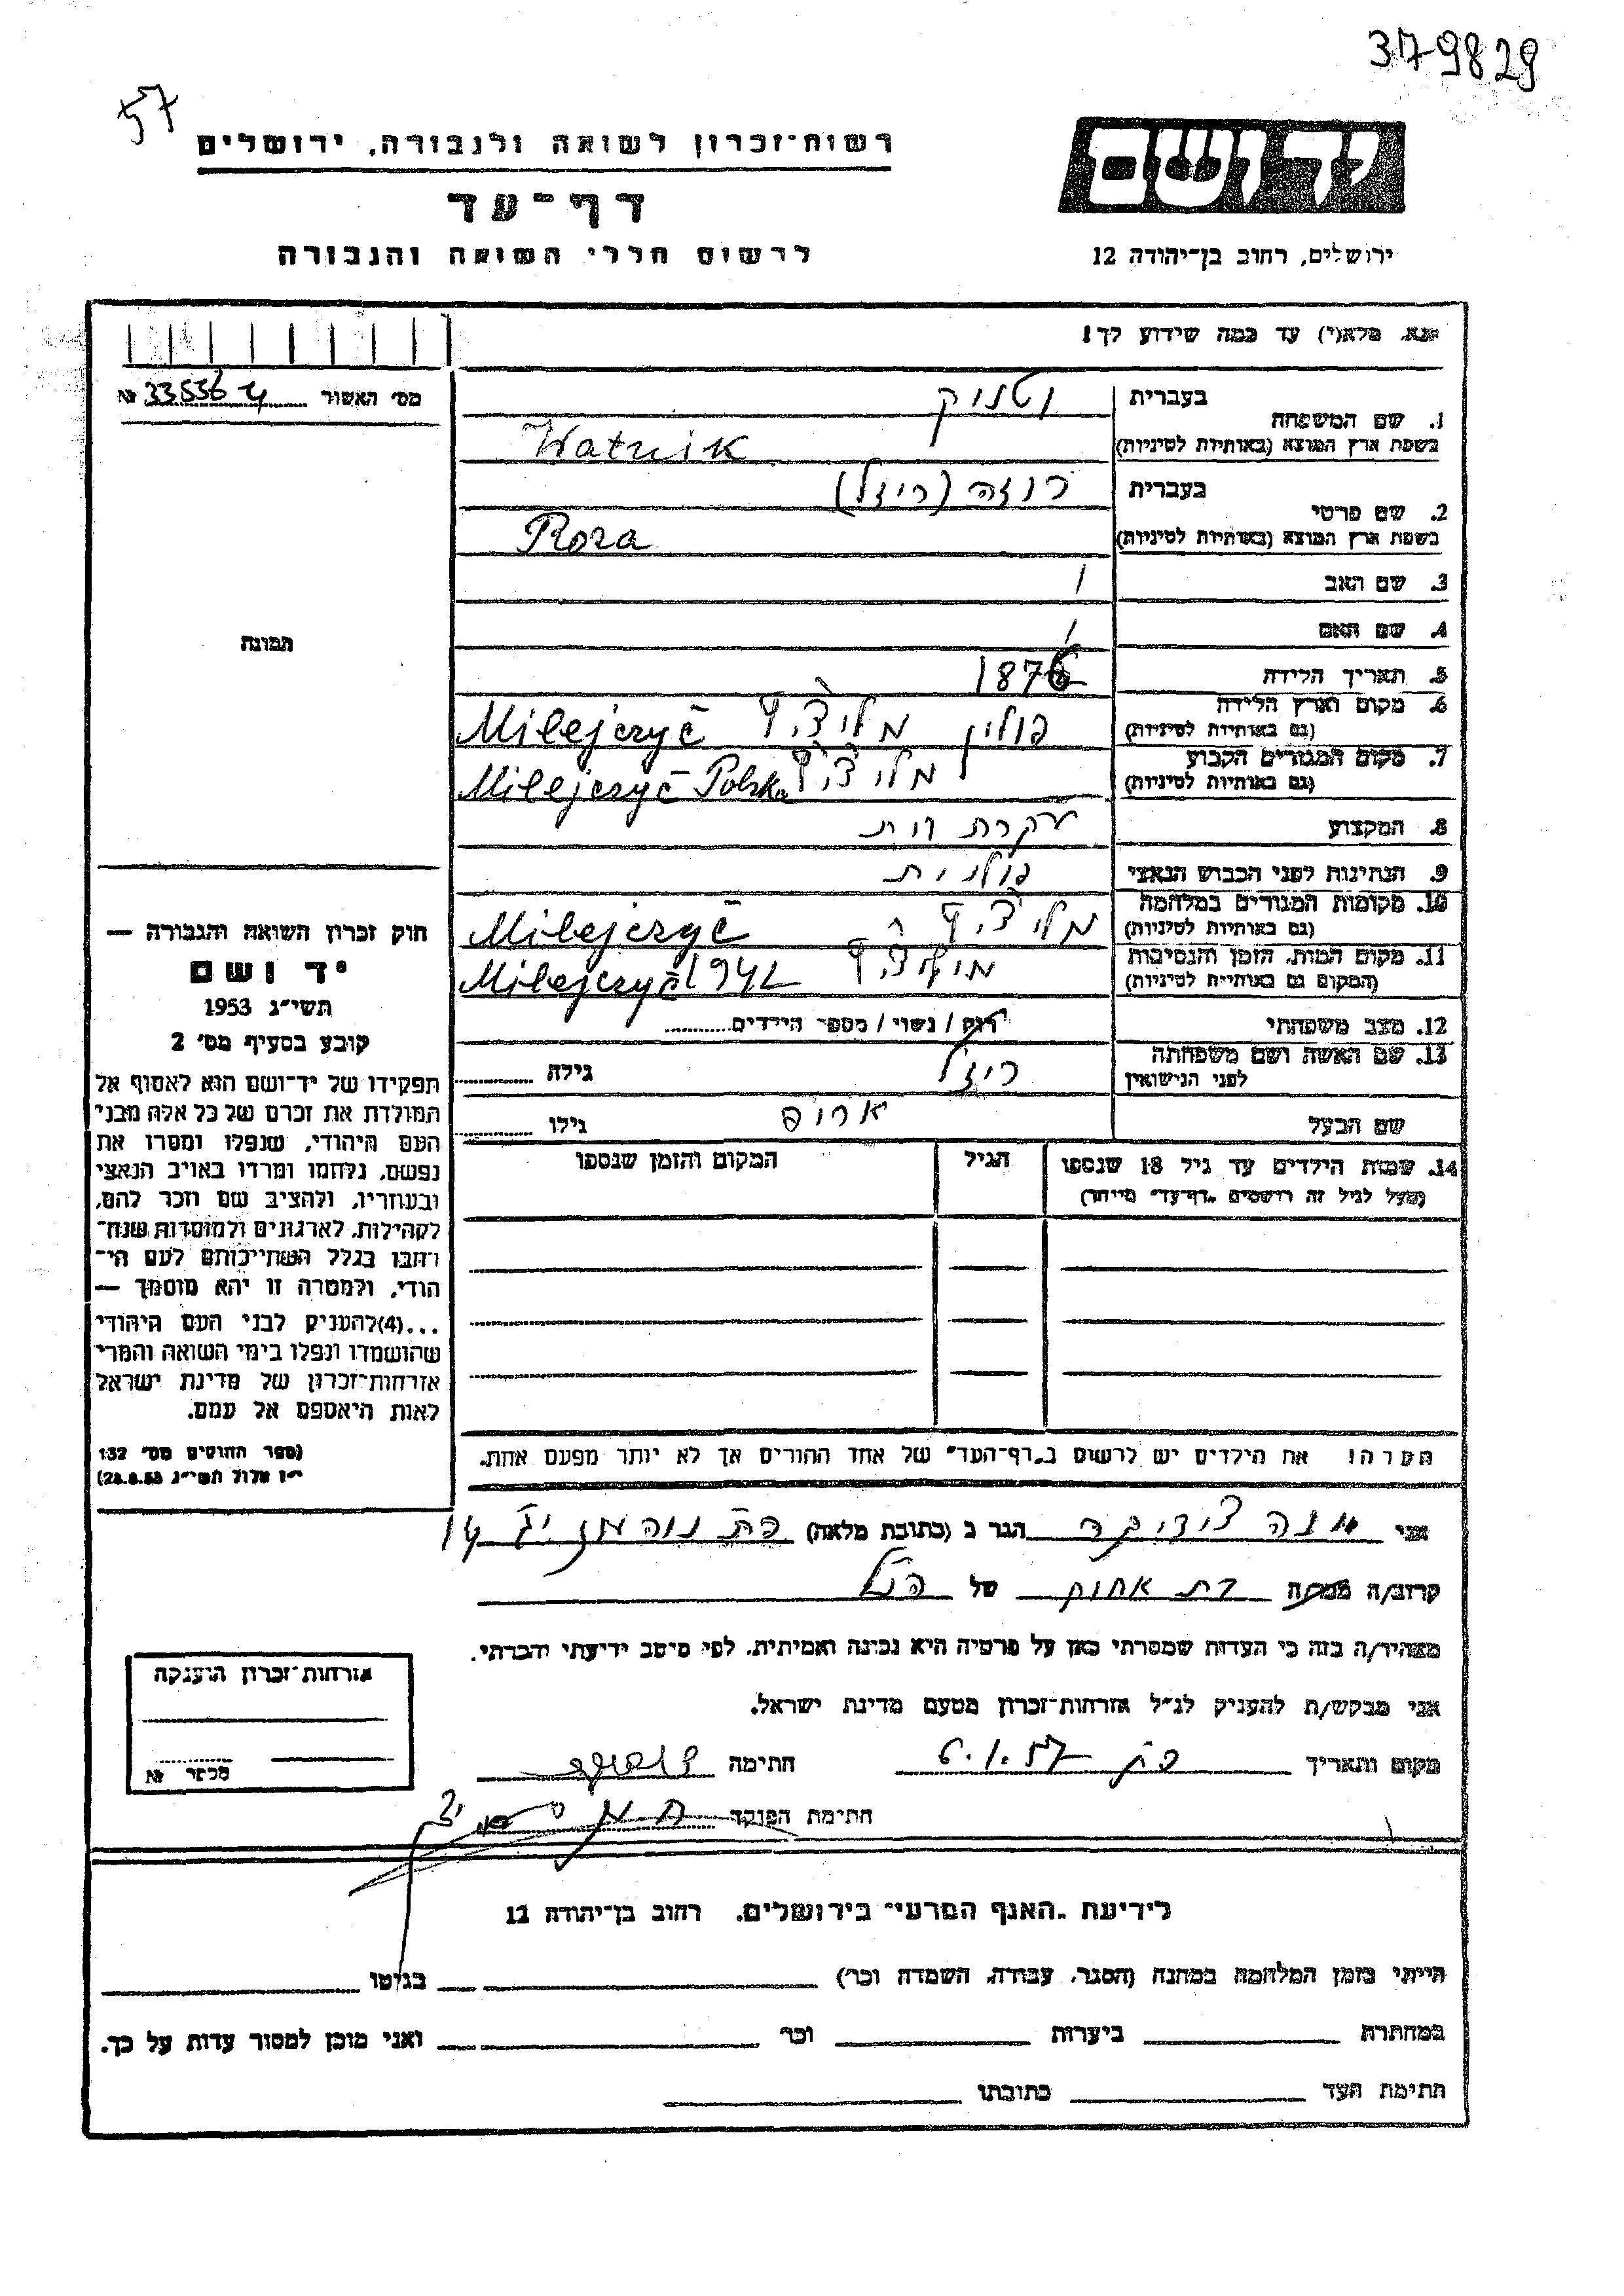 379829
57
יד ושם
רשות־זכרון לשואה ולגבורה, ירושלים
דף־עד
לרשום חללי השואה והגבורה
ירושלים, רחוב בן־יהודה 12
אנא, מלא(י) עד כמה שידוע לך!
מס' האשור № 33536
1. שם המשפחה
בעברית וטניק
בשפת ארץ המוצא (באותיות לטיניות) Watnik
2. שם פרטי
בעברית רוזה (ריזל)
בשפת ארץ המוצא (באותיות לטיניות) Roza
3. שם האב /
4. שם האם /
5. תאריך הלידה 1876
6. מקום וארץ הלידה (גם באותיות לטיניות) פולין Milejczyč
7. מקום המגורים הקבוע (גם באותיות לטיניות) Milejczyč Polska
8. המקצוע עקרת בית
9. הנתינות לפני הכבוש הנאצי פולנית
10. מקומות המגורים במלחמה (גם באותיות לטיניות) Milejczyč
11. מקום המות, הזמן והנסיבות (המקום גם באותיות לטיניות) Milejczyč 1942
12. מצב משפחתי רוק / נשוי / מספר הילדים
13. שם האשה ושם משפחתה לפני הנישואין ריזל גילה
שם הבעל גילו
14. שמות הילדים עד גיל 18 שנספו
(מעל לגיל זה רושמים "דף־עד" מיוחד)
הגיל
המקום והזמן שנספו
הערה: את הילדים יש לרשום ב"דף־העד" של אחד ההורים אך לא יותר מפעם אחת.
תמונה
חוק זכרון השואה והגבורה —
יד ושם
תשי"ג 1953
קובע בסעיף מס' 2
תפקידו של יד־ושם הוא לאסוף אל
המולדת את זכרם של כל אלה מבני
העם היהודי, שנפלו ומסרו את
נפשם, נלחמו ומרדו באויב הנאצי
ובעוזריו, ולהציב שם וזכר להם,
לקהילות, לארגונים ולמוסדות שנח־
רבו בגלל השתייכותם לעם הי־
הודי, ולמטרה זו יהא מוסמך —
...(4) להעניק לבני העם היהודי
שהושמדו ונפלו בימי השואה והמרי
אזרחות־זכרון של מדינת ישראל
לאות היאספם אל עמם.
(ספר החוקים מס' 132
י"ז אלול תשי"ג 28.8.53)
אני הגר ב (כתובת מלאה) 14
קרוב/ה מכר/ה בת אחות של הנ"ל
מצהיר/ה בזה כי העדות שמסרתי כאן על פרטיה היא נכונה ואמיתית, לפי מיטב ידיעתי והכרתי.
אני מבקש/ת להעניק לנ"ל אזרחות־זכרון מטעם מדינת ישראל.
מקום ותאריך 6.1.57 חתימה
חתימת הפוקד
אזרחות־זכרון הוענקה
מכשר №
לידיעת "האגף המדעי" בירושלים, רחוב בן־יהודה 12
הייתי בזמן המלחמה במחנה (הסגר, עבודה, השמדה וכו') בגיטו
במחתרת ביערות וכו' ואני מוכן למסור עדות על כך.
חתימת העד כתובתו